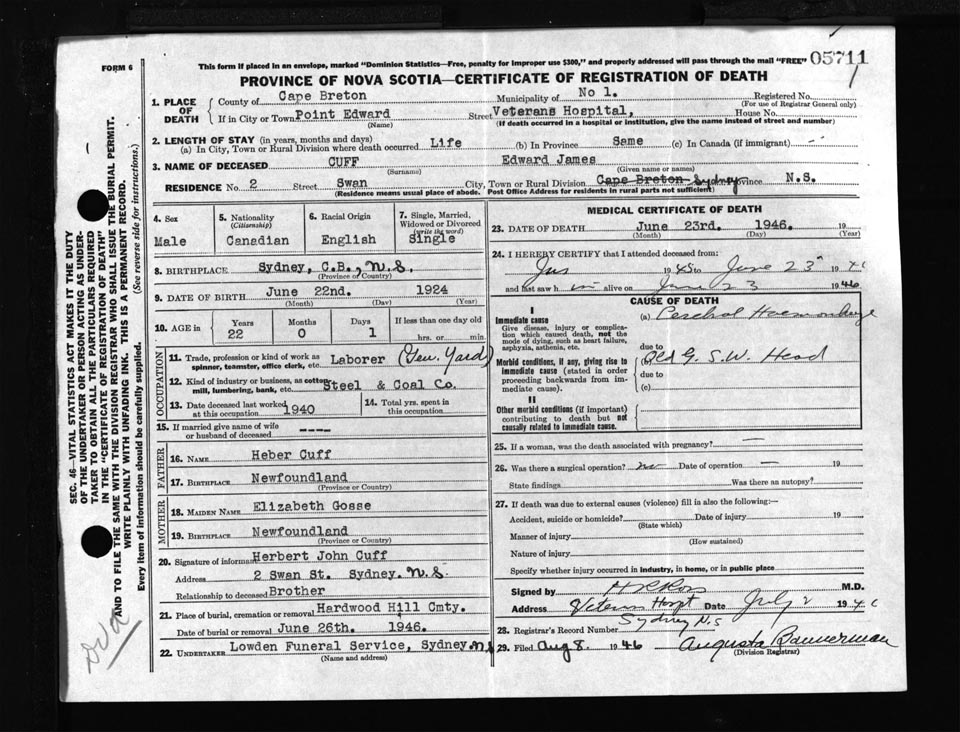 FORM 6
This form if placed in an envelope, marked "Dominion Statistics—Free, penalty for improper use $300," and properly addressed will pass through the mail "FREE" 05711
PROVINCE OF NOVA SCOTIA—CERTIFICATE OF REGISTRATION OF DEATH
1. PLACE OF DEATH
County of Cape Breton Municipality of No 1. Registered No.
(For use of Registrar General only)
If in City or Town Point Edward Street Veterans Hospital, House No.
(Name) (If death occurred in a hospital or institution, give the name instead of street and number)
2. LENGTH OF STAY (in years, months and days)
(a) In City, Town or Rural Division where death occurred Life (b) In Province Same (c) In Canada (if immigrant) -
3. NAME OF DECEASED CUFF Edward James
(Surname) (Given name or names)
RESIDENCE No. 2 Street Swan City, Town or Rural Division Cape Breton Sydney Province N.S.
(Residence means usual place of abode. Post Office Address for residents in rural parts not sufficient)
4. Sex
Male
5. Nationality
(Citizenship)
Canadian
6. Racial Origin
English
7. Single, Married, Widowed or Divorced
(write the word)
Single
8. BIRTHPLACE Sydney, C.B., N.S.
(Province or Country)
9. DATE OF BIRTH June 22nd. 1924
(Month) (Day) (Year)
10. AGE in
Years Months Days If less than one day old
22 0 1 hrs. or min.
OCCUPATION
11. Trade, profession or kind of work as spinner, teamster, office clerk, etc. Laborer (Gen. Yard)
12. Kind of industry or business, as cotton mill, lumbering, bank, etc. Steel & Coal Co.
13. Date deceased last worked at this occupation 1940
14. Total yrs. spent in this occupation
15. If married give name of wife or husband of deceased ----
FATHER
16. NAME Heber Cuff
17. BIRTHPLACE Newfoundland
(Province or Country)
MOTHER
18. MAIDEN NAME Elizabeth Gosse
19. BIRTHPLACE Newfoundland
(Province or Country)
20. Signature of informant Herbert John Cuff
Address 2 Swan St. Sydney. N.S.
Relationship to deceased Brother
21. Place of burial, cremation or removal Hardwood Hill Cmty.
Date of burial or removal June 26th. 1946.
22. UNDERTAKER Lowden Funeral Service, Sydney. N.S
(Name and address)
MEDICAL CERTIFICATE OF DEATH
23. DATE OF DEATH June 23rd. 1946. 19
(Month) (Day) (Year)
24. I HEREBY CERTIFY that I attended deceased from:
1945 to June 23 1946
and last saw him alive on June 23 1946
CAUSE OF DEATH
I
Immediate cause
Give disease, injury or complication which caused death, not the mode of dying, such as heart failure, asphyxia, asthenia, etc.
(a) Cerebral Haemorrhage
due to
Morbid conditions, if any, giving rise to immediate cause (stated in order proceeding backwards from immediate cause).
Old G.S.W. Head
due to
(c)
II
Other morbid conditions (if important) contributing to death but not causally related to immediate cause.
25. If a woman, was the death associated with pregnancy? —
26. Was there a surgical operation? no Date of operation — 19
State findings Was there an autopsy?
27. If death was due to external causes (violence) fill in also the following:—
Accident, suicide or homicide? Date of injury 19
(State which)
Manner of injury
(How sustained)
Nature of injury
Specify whether injury occurred in industry, in home, or in public place
Signed by M.D.
Address Veterans Hospt Date July 2 1946
Sydney N.S
28. Registrar's Record Number
29. Filed Aug 8. 1946 Augusta Bannerman
(Division Registrar)
SEC. 46—VITAL STATISTICS ACT MAKES IT THE DUTY
OF THE UNDERTAKER OR PERSON ACTING AS UNDER-
TAKER TO OBTAIN ALL THE PARTICULARS REQUIRED
IN THE "CERTIFICATE OF REGISTRATION OF DEATH"
AND TO FILE THE SAME WITH THE DIVISION REGISTRAR WHO SHALL ISSUE THE BURIAL PERMIT.
WRITE PLAINLY WITH UNFADING INK. THIS IS A PERMANENT RECORD.
Every item of information should be carefully supplied. (See reverse side for instructions.)